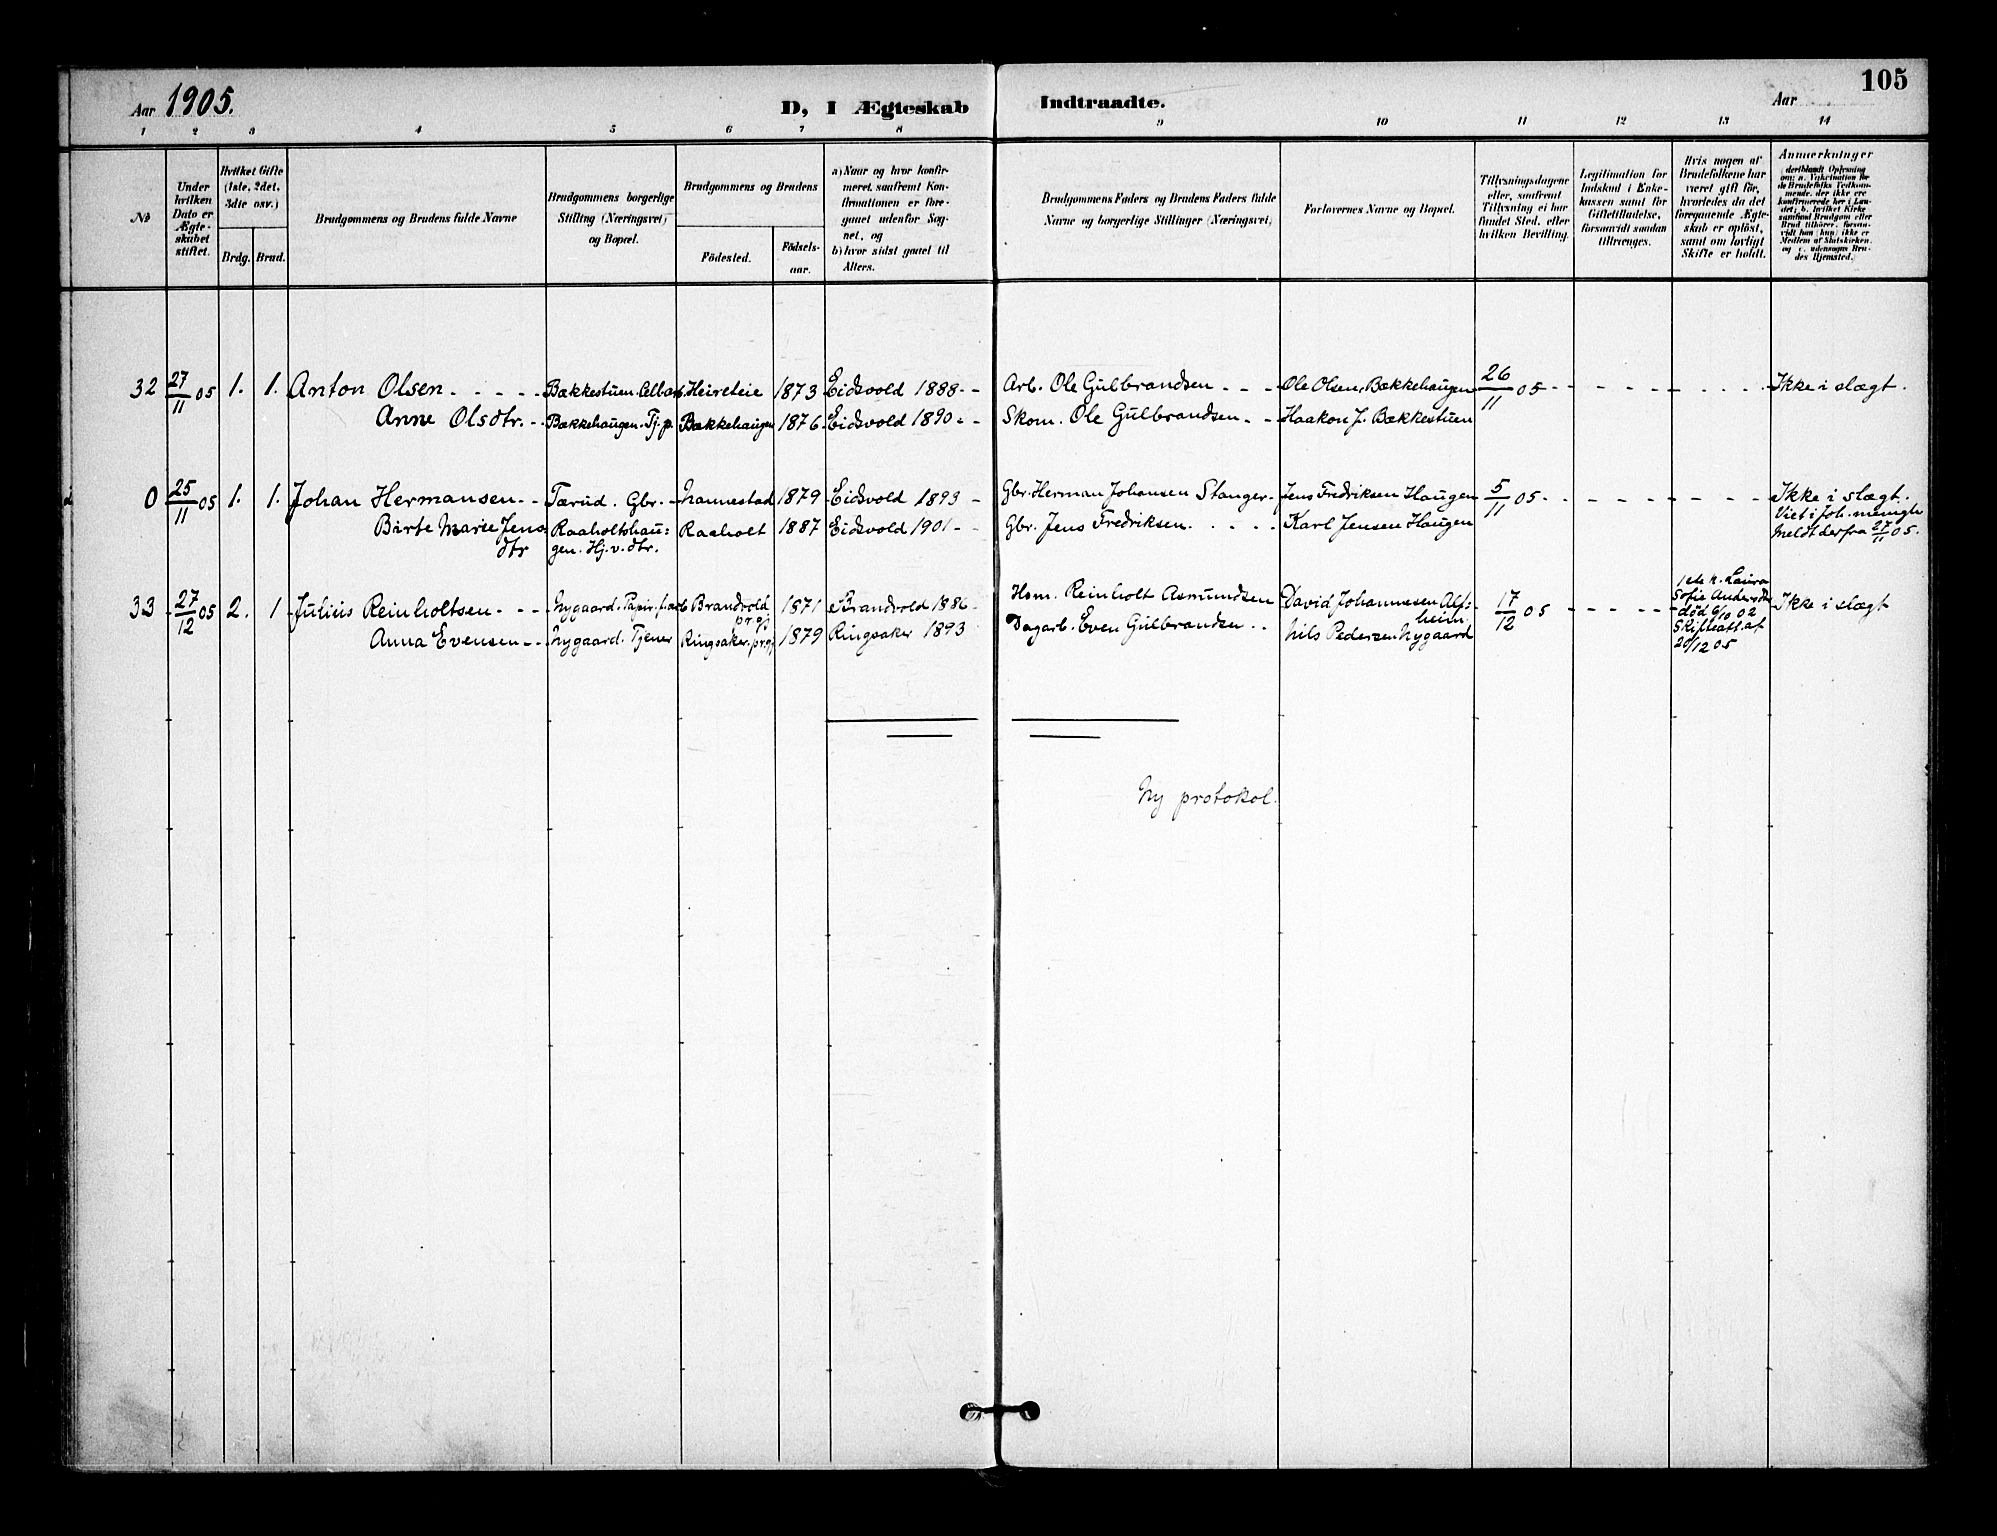 Aar 1905. D, I Ægteskab Indtraadte. Aar 105
1 2 3 4 5 6 7 8 9 10 11 12 13 14
No
Under hvilken Dato er Ægteskabet stiftet.
Hvilket Gifte (1ste, 2det, 3die osv.)
Brdg. Brud.
Brudgommens og Brudens fulde Navne
Brudgommens borgerlige Stilling (Næringsvei) og Bopæl.
Brudgommens og Brudens
Födested. Födsels-aar.
a) Naar og hvor konfirmeret, saafremt Konfirmationen er foregaaet udenfor Sognet, og
b) hvor sidst gaaet til Alters.
Brudgommens Faders og Brudens Faders fulde Navne og borgerlige Stillinger (Næringsvei)
Forlovernes Navne og Bopæl.
Tillysningsdagene eller, saafremt Tillysning ei har fundet Sted, efter hvilken Bevilling.
Legitimation for Indskud i Enkekassen samt for Giftetilladelse, forsaavidt saadan tiltrænges.
Hvis nogen af Brudefolkene har været gift för, hvorledes da det foregaaende Ægteskab er oplöst, samt om lovligt Skifte er holdt.
Anmerkninger
32 27/11 05 1. 1. Anton Olsen Bækkestuen. Heireteie 1873 Eidsvold 1888 Arb. Ole Gulbrandsen Ole Olsen, Bækkehaugen 26/11 05 Ikke i slægt.
Anne Olsdtr. Bækkehaugen. Tj.p. Bækkehaugen 1876 Eidsvold 1890 Skom. Ole Gulbrandsen Haakon J. Bækkestuen
0 25/11 05 1. 1. Johan Hermansen Tærud. Gbr. Nannestad 1879 Eidsvold 1893 Gbr. Herman Johansen Stanger Jens Fredriksen Haugen 5/11 05 Ikke i slægt.
Birte Marie Jens Raaholtshau= Raaholt 1887 Eidsvold 1901 Gbr. Jens Fredriksen Karl Jensen Haugen Viet i Joh. menigh
dtr gen. Hj. v. dtr. Meldt derfra 27/11 05.
33 27/12 05 2. 1 Julius Reinholtsen Nygaard. Brandvold pr.gj 1871 Brandvold 1886 Hsm. Reinholt Asmundsen David Johannesen Alf= heim 17/12 05 Ikke i slægt
Anna Evensen Nygaard. Tjener Ringsaker. pr.gj 1879 Ringsaker 1893 Dagarb. Even Gulbrandsen Nils Pedersen Nygaard
1ste h. Laura
Sofie Andersdtr
död 6/10 02
Skifteatt. af
20/12 05
Ny protokol.